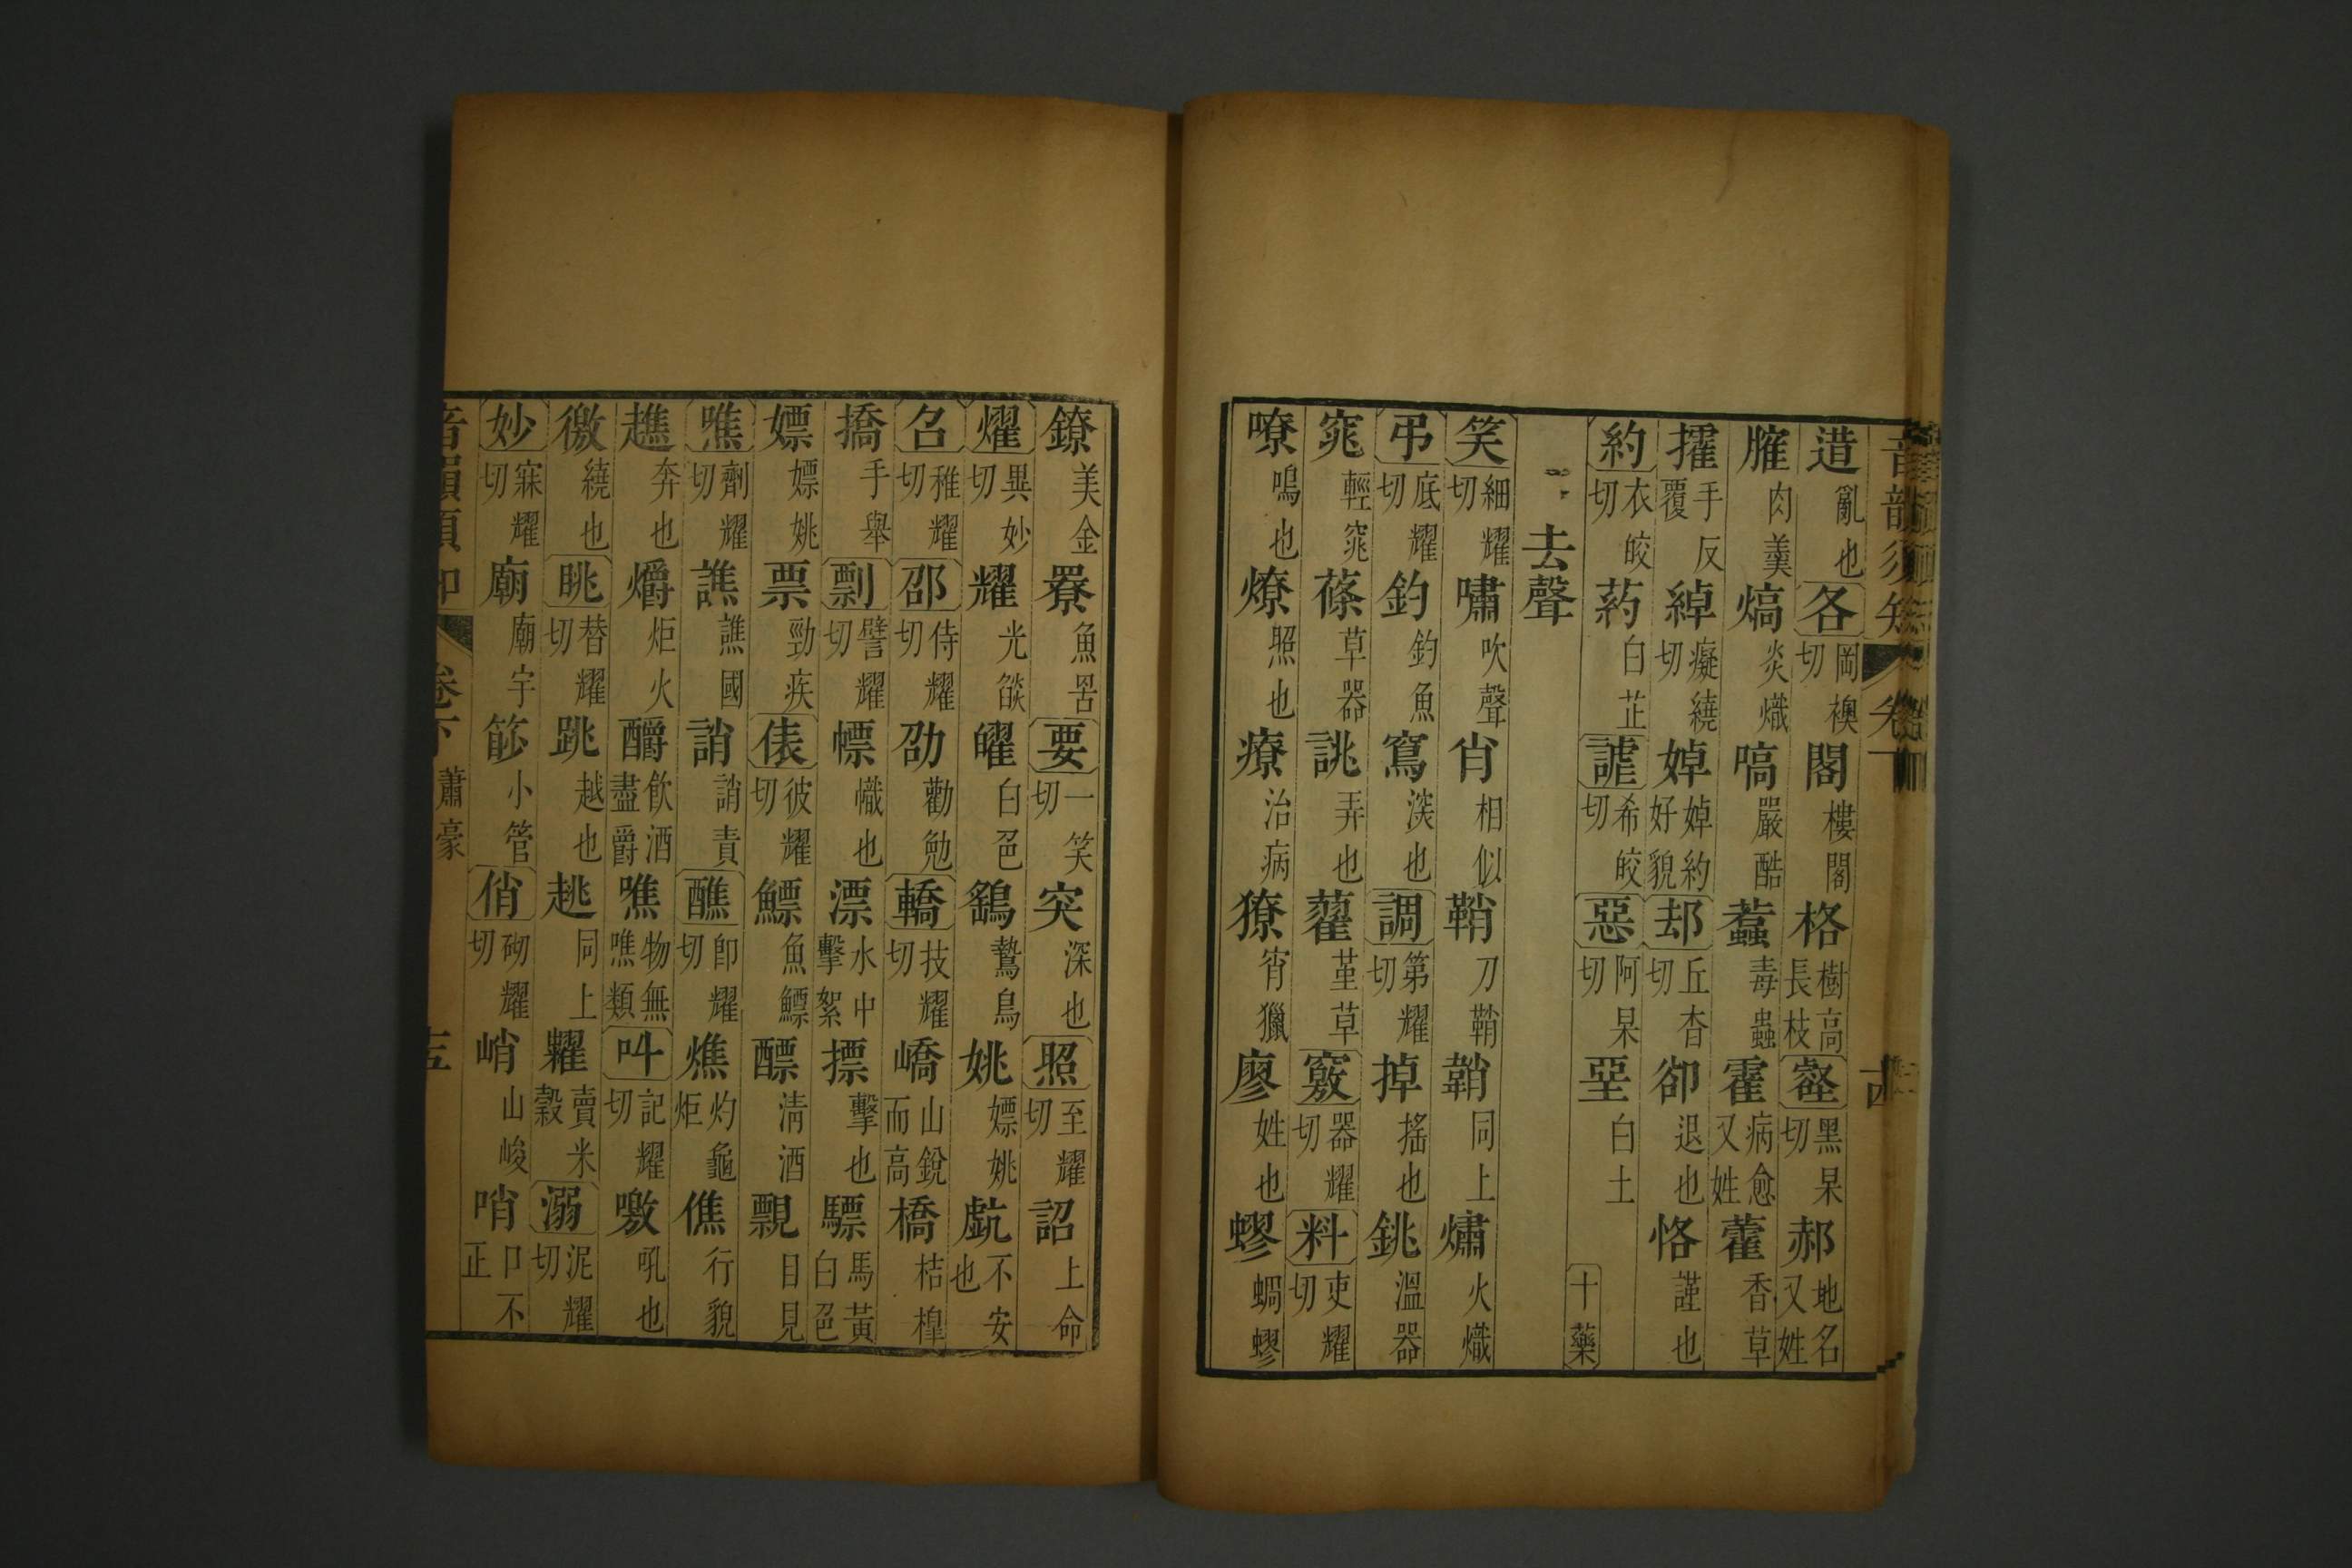 造亂也各岡襖切閣樓閣格樹高長枝壑黑杲切郝地名又姓
臛肉羹熇炎熾嗃嚴酷蠚毒蟲霍病愈又姓藿香草
攉手反覆綽癡繞切婥婥約好貌却丘杳切卻退也恪謹也
約衣皎切葯白芷謔希皎切惡阿杲切堊白土十藥
去聲
笑細耀切嘯吹聲肖相似鞘刀鞘鞘同上熽火熾
弔底耀切釣釣魚窵深也調第耀切掉搖也銚溫器
窕輕窕蓧草器誂弄也藋堇草竅器耀切料吏耀切
嘹鳴也燎照也療治病獠宵獵廖姓也蟉蜩蟉
鐐美金尞魚罟要一笑切突深也照至耀切詔上命
燿異妙切耀光燄曜白色鷂鷙鳥姚嫖姚䖍不安也
召稚耀切邵侍耀切劭勸勉轎技耀切嶠山銳而高橋桔槔
撟手舉剽譬耀切幖幟也漂水中擊絮摽擊也驃馬黃白色
嫖嫖姚票勁疾俵彼耀切鰾魚鰾醥清酒覭目見
噍劑耀切譙譙國誚誚責醮卽耀切燋灼龜炬僬行貌
趭奔也爝炬火釂飲酒盡爵噍物無噍類叫記耀切噭吼也
徼繞也眺替耀切跳越也趒同上糶賣米穀溺泥耀切
妙寐耀切廟廟宇篎小管俏砌耀切峭山峻哨口不正
卷下 蕭豪